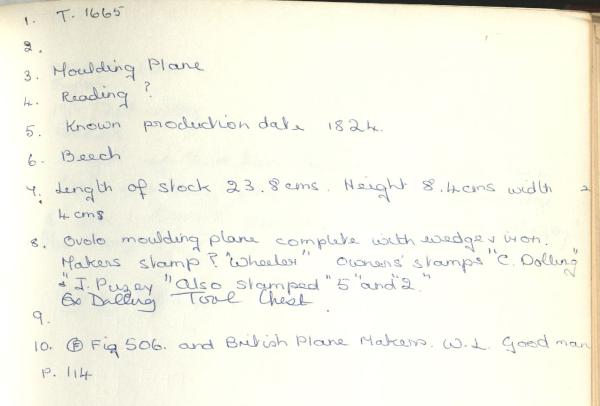 1. T. 1665
2.
3. Moulding Plane
4. Reading ?
5. Known production date 1824.
6. Beech
7. Length of stock 23.8cms. Height 8.4cms width 2
4 cms
8. Ovolo moulding plane complete with wedge & iron.
Makers stamp ? "Wheeler" Owners' stamps "C. Dolling"
& "J. Puzey" Also stamped "5" and "2."
Ex Dalling Tool Chest.
9.
10. Ⓕ Fig 506. and British Plane Makers. W.L. Goodman
P. 114